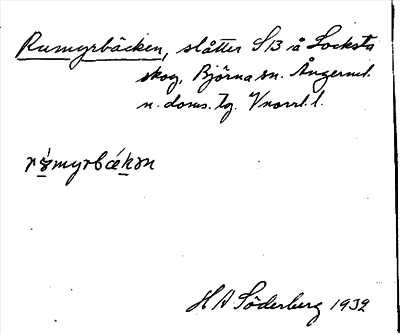 Rumyrbäcken, slåtter SB å Locksta
skog, Björna sn. Ångerml.
n. doms. tg. Vnorrl. l.
H A Söderberg 1932